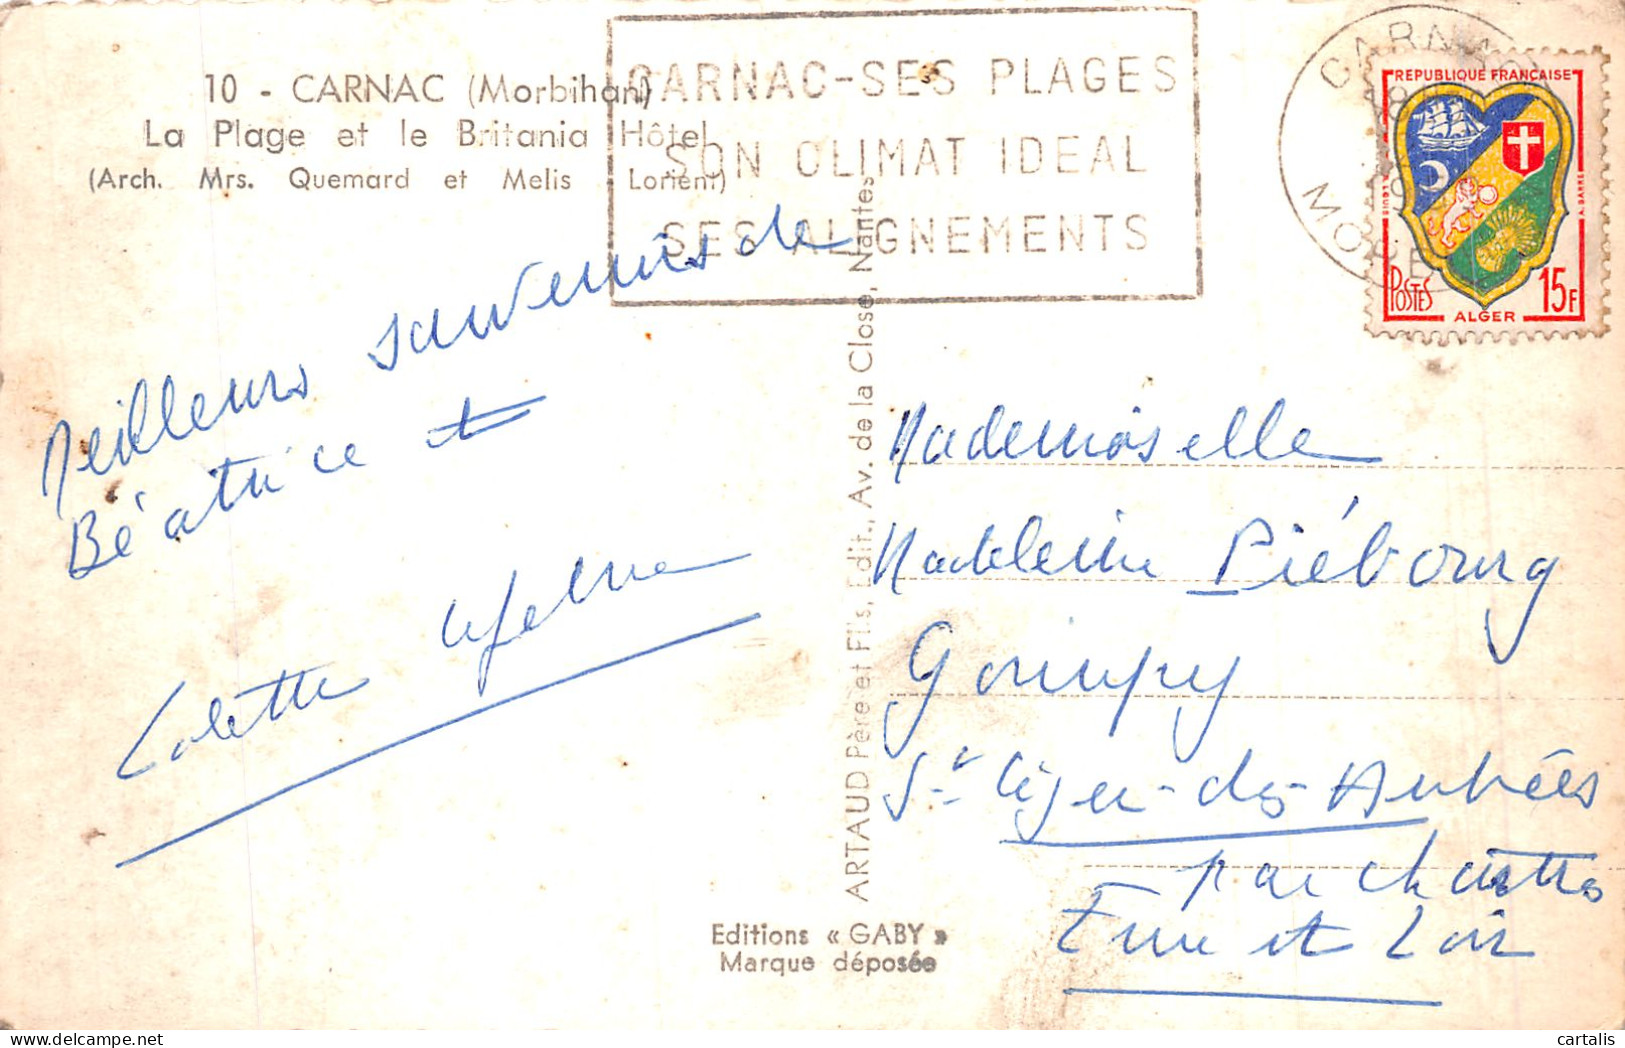 10 - CARNAC (Morbihan)
La Plage et le Britania Hôtel
(Arch. Mrs. Quemard et Melis - Lorient)
CARNAC-SES PLAGES
SON CLIMAT IDEAL
SES ALIGNEMENTS
CARNAC
MORB
REPUBLIQUE FRANÇAISE
POSTES
ALGER
15F
Meilleurs souvenirs de
Béatrice et
Colette
ARTAUD Père et Fils, Edit., Av. de la Close, Nantes
Mademoiselle
Madeleine Piébourg
Goimpy
St Léger-des-Aubées
par Chartres
Eure et Loir
Editions « GABY »
Marque déposée
cartalis